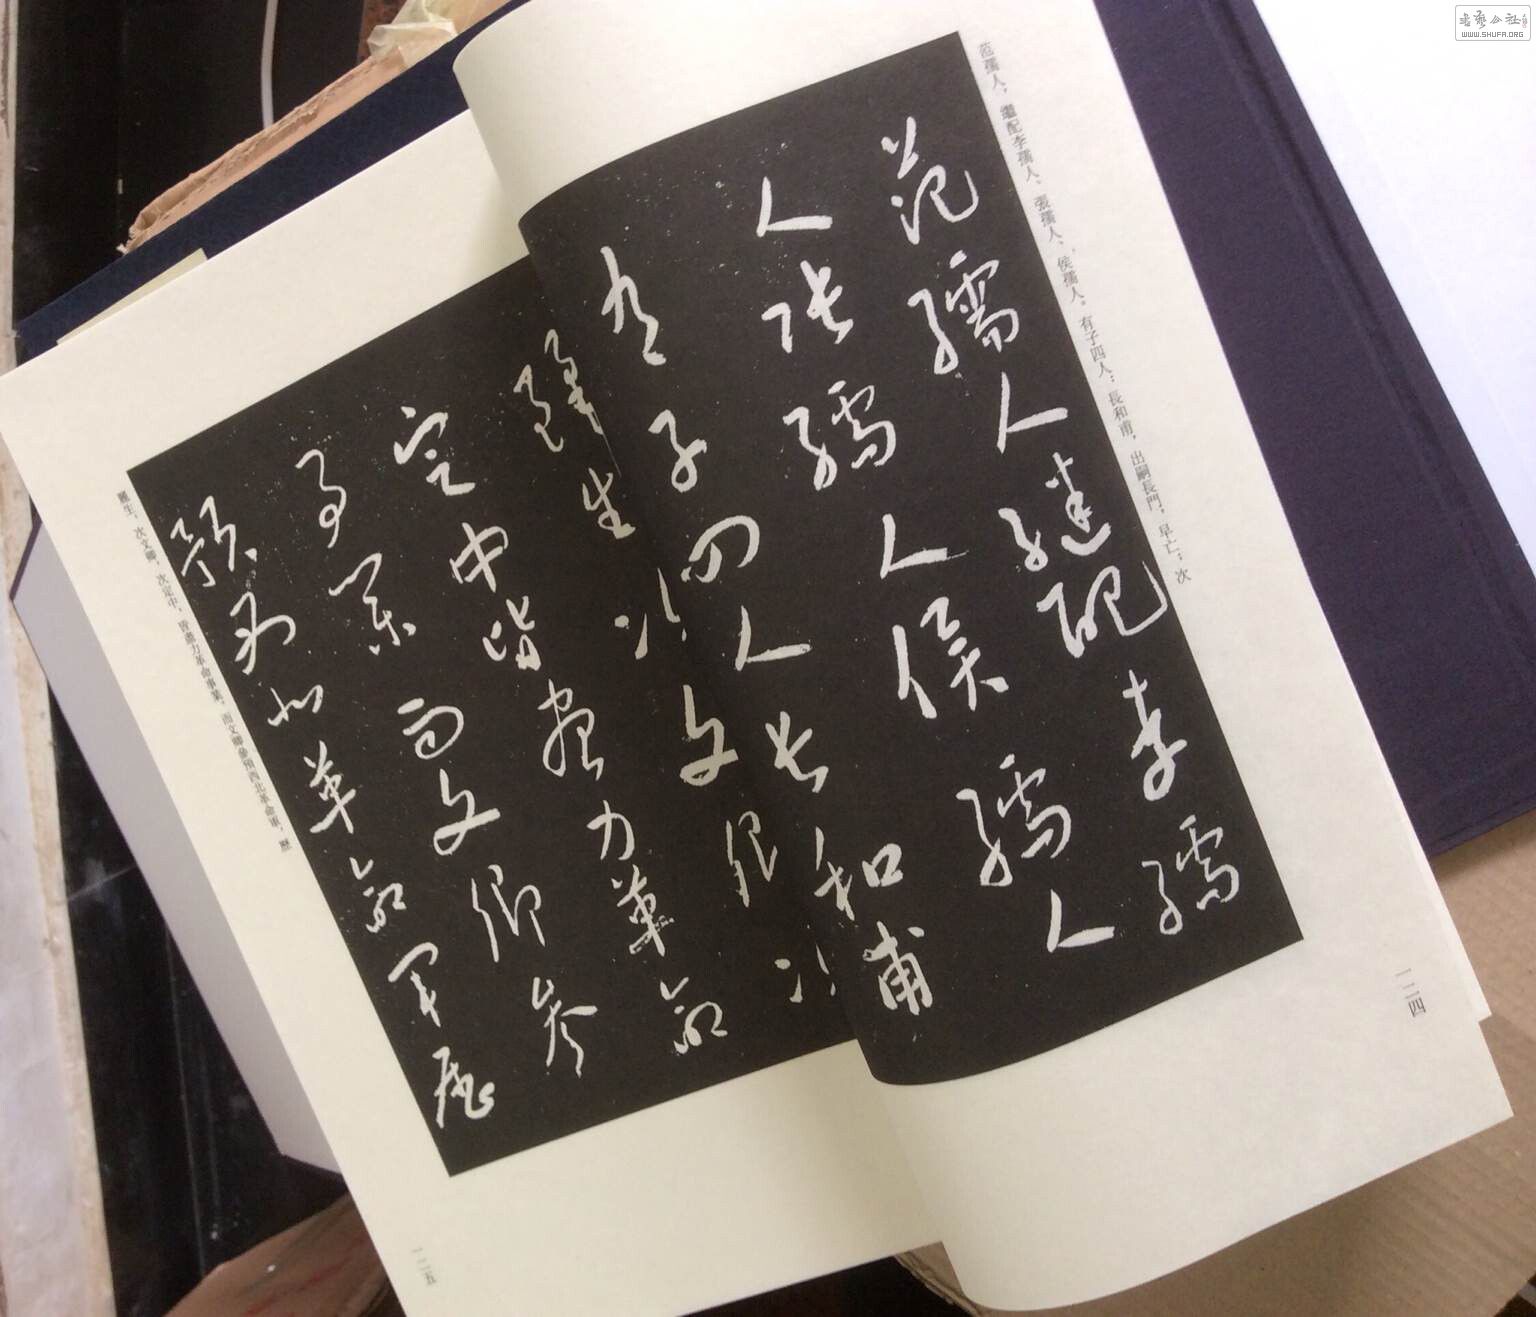 范孺人繼配李孺
人張孺人侯孺人
有子四人長和甫
次文卿次
麗生
定中皆盡力革命
事業而文卿參
預西北革命軍歷
范孺人，繼配李孺人、張孺人、侯孺人。有子四人：長和甫，出嗣長門，早亡；次
麗生，次文卿，次定中，皆盡力革命事業，而文卿參預西北革命軍，歷
一二四
一二五
書藝公社
WWW.SHUFA.ORG